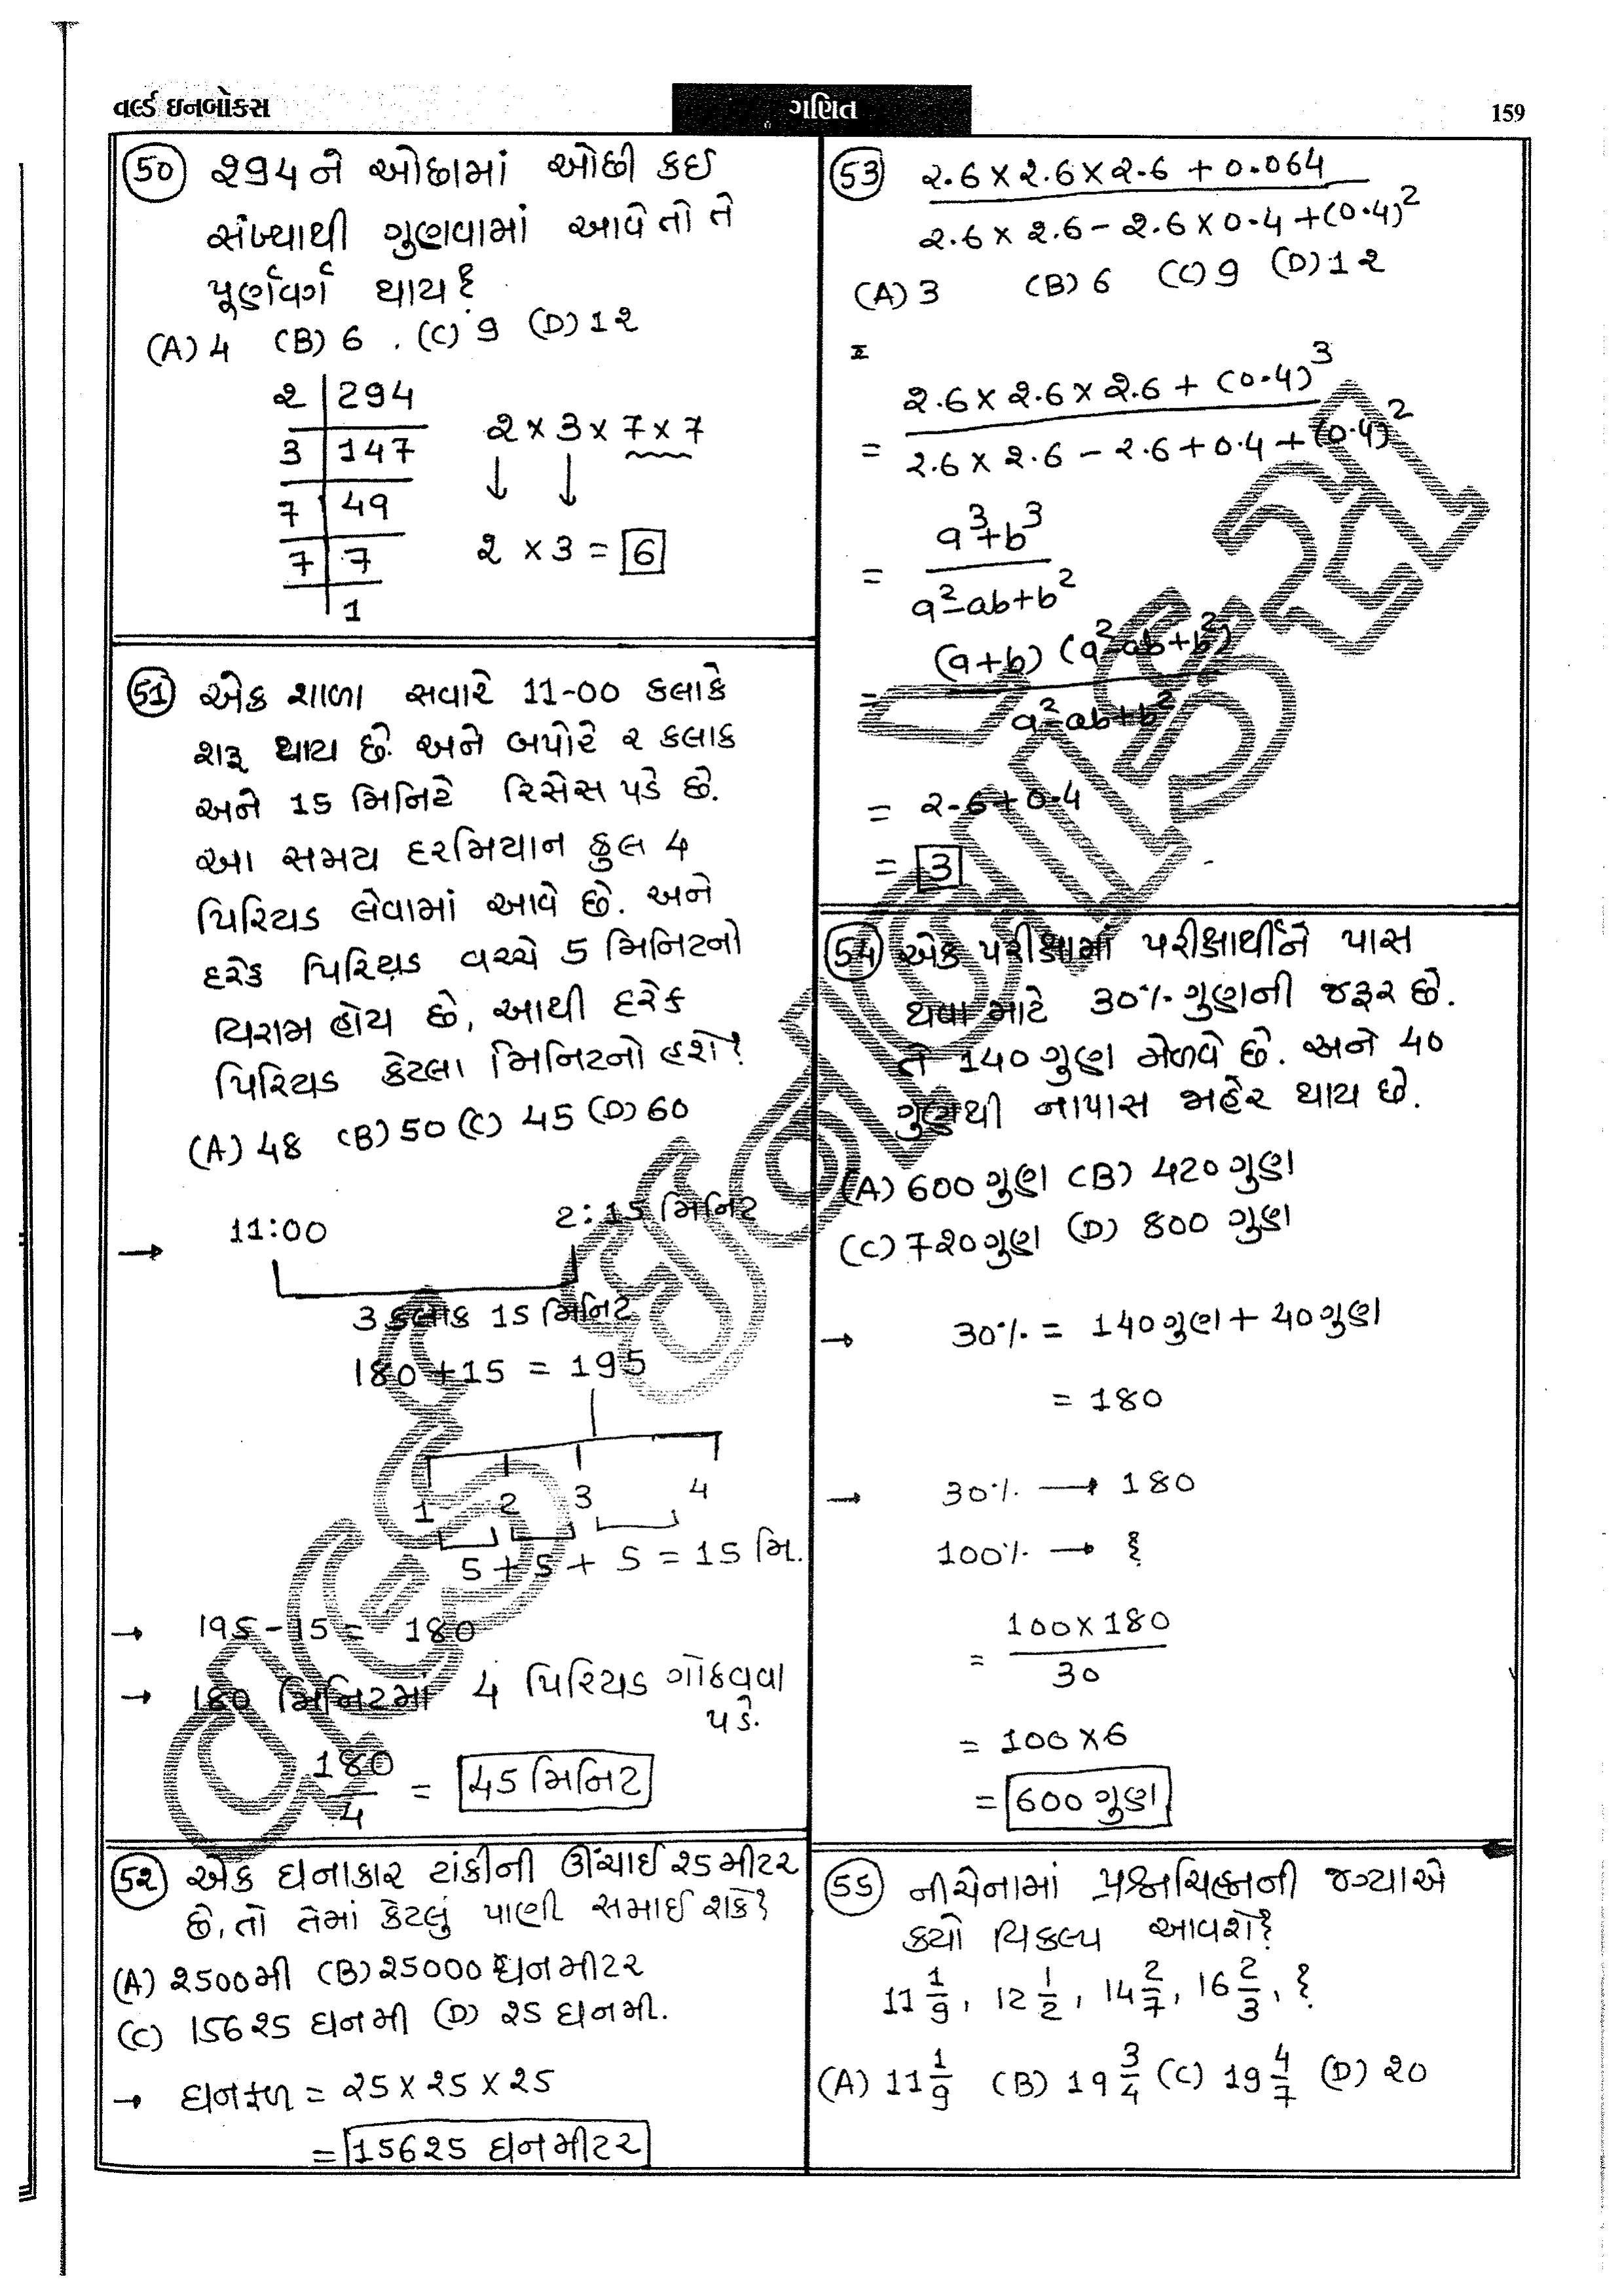 વર્લ્ડ ઇનબોક્સ
ગણિત
159
50 294 ને ઓછામાં ઓછી કઈ
સંખ્યાથી ગુણવામાં આવે તો તે
પૂર્ણવર્ગ થાય ?
(A) 4 (B) 6 (C) 9 (D) 12
2 | 294
3 | 147
7 | 49
7 | 7
1
2 × 3 × 7 × 7
↓ ↓
2 × 3 = 6
51 એક શાળા સવારે 11-00 કલાકે
શરૂ થાય છે. અને બપોરે ૨ કલાક
અને 15 મિનિટે રિસેસ પડે છે.
આ સમય દરમિયાન કુલ 4
પિરિયડ લેવામાં આવે છે. અને
દરેક પિરિયડ વચ્ચે 5 મિનિટનો
વિરામ હોય છે, આથી દરેક
પિરિયડ કેટલા મિનિટનો હશે ?
(A) 48 (B) 50 (C) 45 (D) 60
→ 11:00 2:15 મિનિટ
3 કલાક 15 મિનિટ
180 + 15 = 195
1 2 3 4
5 + 5 + 5 = 15 મિ.
→ 195 - 15 = 180
→ 180 મિનિટમાં 4 પિરિયડ ગોઠવવા
પડે.
180/4 = 45 મિનિટ
52 એક ઘનાકાર ટાંકીની ઊંચાઈ 25 મીટર
છે, તો તેમાં કેટલું પાણી સમાઈ શકે ?
(A) 2500 મી (B) 25000 ઘનમીટર
(C) 15625 ઘનમી (D) 25 ઘનમી.
→ ઘનફળ = 25 × 25 × 25
= 15625 ઘનમીટર
53 2.6 × 2.6 × 2.6 + 0.064
2.6 × 2.6 - 2.6 × 0.4 + (0.4)²
(A) 3 (B) 6 (C) 9 (D) 12
2.6 × 2.6 × 2.6 + (0.4)³
= 2.6 × 2.6 - 2.6 + 0.4 + (0.4)²
a³+b³
= a²-ab+b²
(a+b) (a²-ab+b²)
= a²-ab+b²
= 2.6 + 0.4
= 3
54 એક પરીક્ષામાં પરીક્ષાર્થીને પાસ
થવા માટે 30% ગુણની જરૂર છે.
તે 140 ગુણ મેળવે છે. અને 40
ગુણથી નાપાસ જાહેર થાય છે.
(A) 600 ગુણ (B) 420 ગુણ
(C) 720 ગુણ (D) 800 ગુણ
→ 30% = 140 ગુણ + 40 ગુણ
= 180
→ 30% → 180
100% → ?
100 × 180
= 30
= 100 × 6
= 600 ગુણ
55 નીચેનામાં પ્રશ્નચિહ્નની જગ્યાએ
ક્યો વિકલ્પ આવશે ?
11 1/9, 12 1/2, 14 2/7, 16 2/3, ?
(A) 11 1/9 (B) 19 3/4 (C) 19 4/7 (D) 20